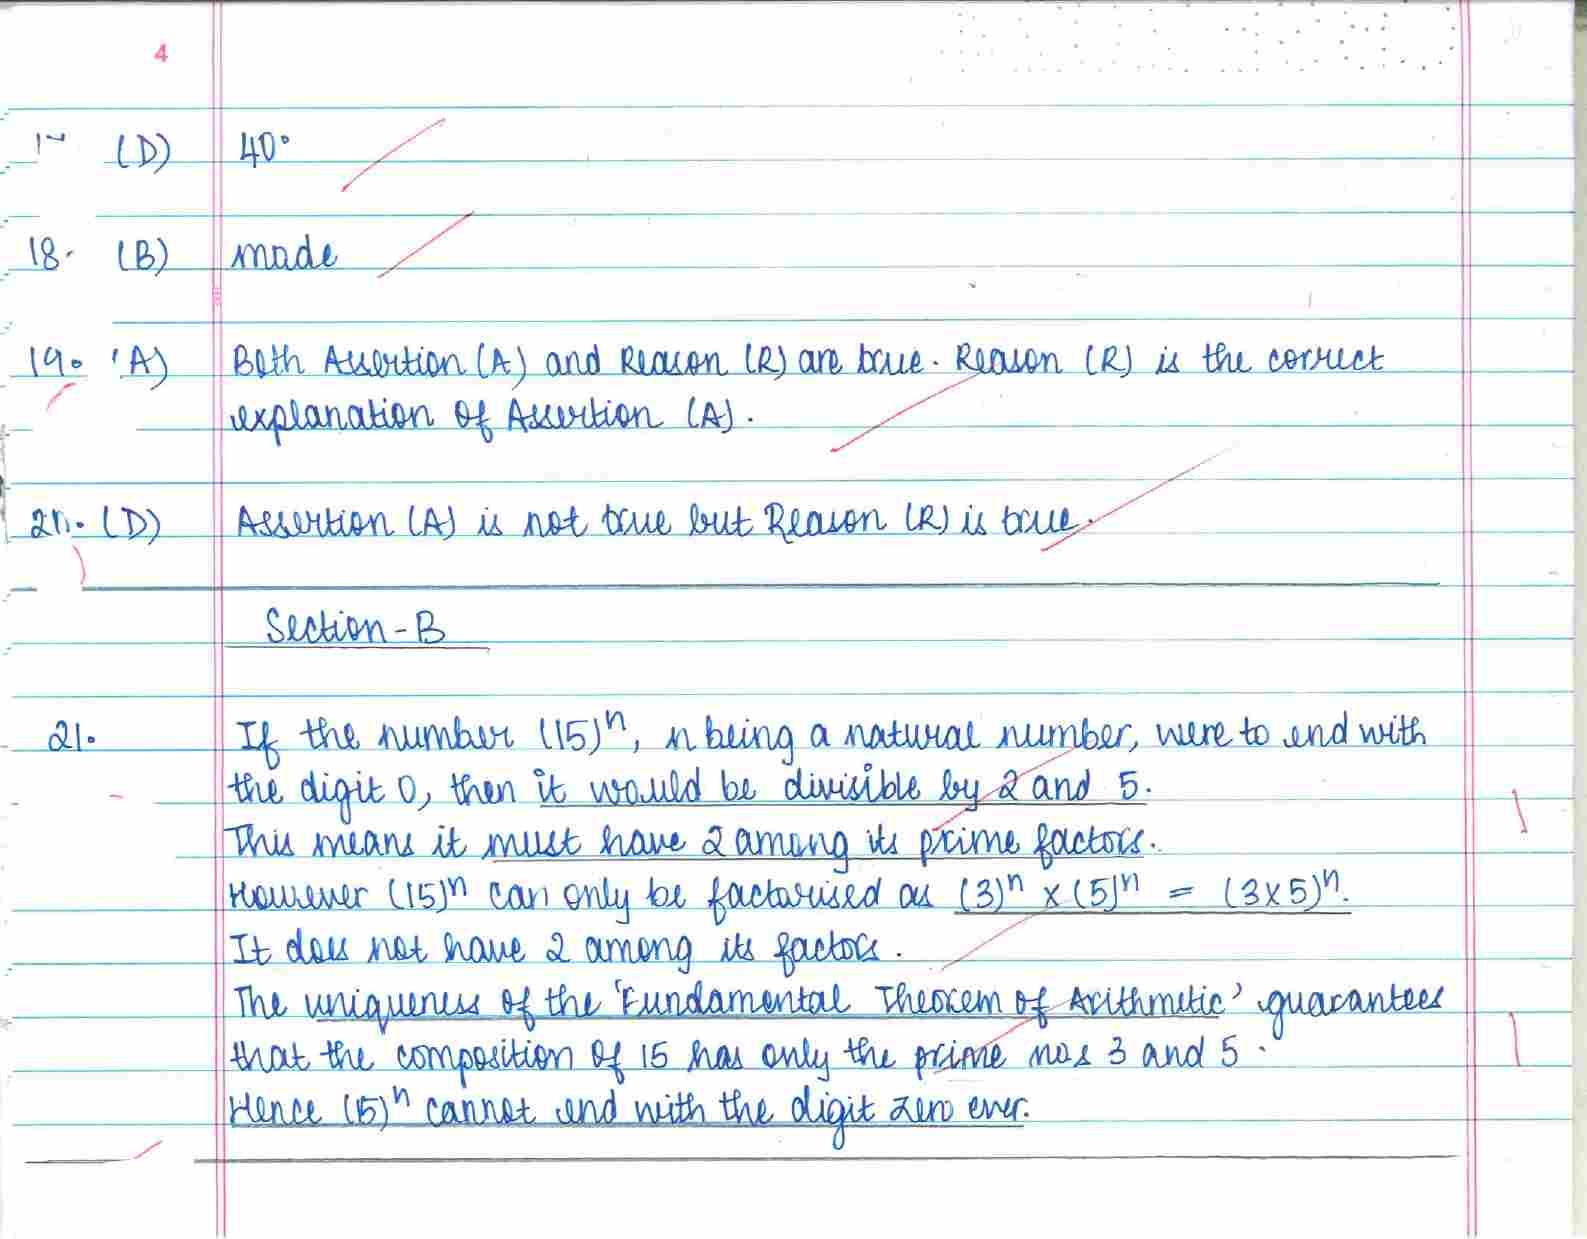 4
(D) 40°
18. (B) made
19. (A) Both Assertion (A) and Reason (R) are true. Reason (R) is the correct
explanation of Assertion (A).
20. (D) Assertion (A) is not true but Reason (R) is true.
Section-B
21. If the number (15)ⁿ, n being a natural number, were to end with
the digit 0, then it would be divisible by 2 and 5.
This means it must have 2 among its prime factors.
However (15)ⁿ can only be factorised as (3)ⁿ × (5)ⁿ = (3×5)ⁿ.
It does not have 2 among its factors.
The uniqueness of the 'Fundamental Theorem of Arithmetic' guarantees
that the composition of 15 has only the prime nos 3 and 5.
Hence (15)ⁿ cannot end with the digit zero ever.